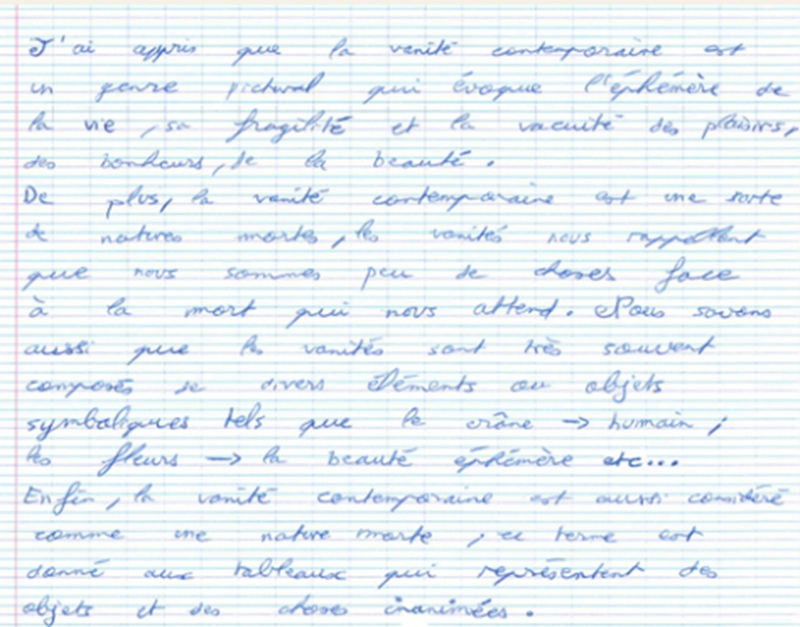 J'ai appris que la vanité contemporaine est
un genre pictural qui évoque l'éphémère de
la vie, sa fragilité et la vacuité des plaisirs,
des bonheurs, de la beauté.
De plus, la vanité contemporaine est une sorte
de natures mortes, les vanités nous rappellent
que nous sommes peu de choses face
à la mort qui nous attend. Nous savons
aussi que les vanités sont très souvent
composés de divers éléments ou objets
symboliques tels que le crâne → humain ;
les fleurs → la beauté éphémère etc...
Enfin, la vanité contemporaine est aussi considéré
comme une nature morte, ce terme est
donné aux tableaux qui représentent des
objets et des choses inanimées.